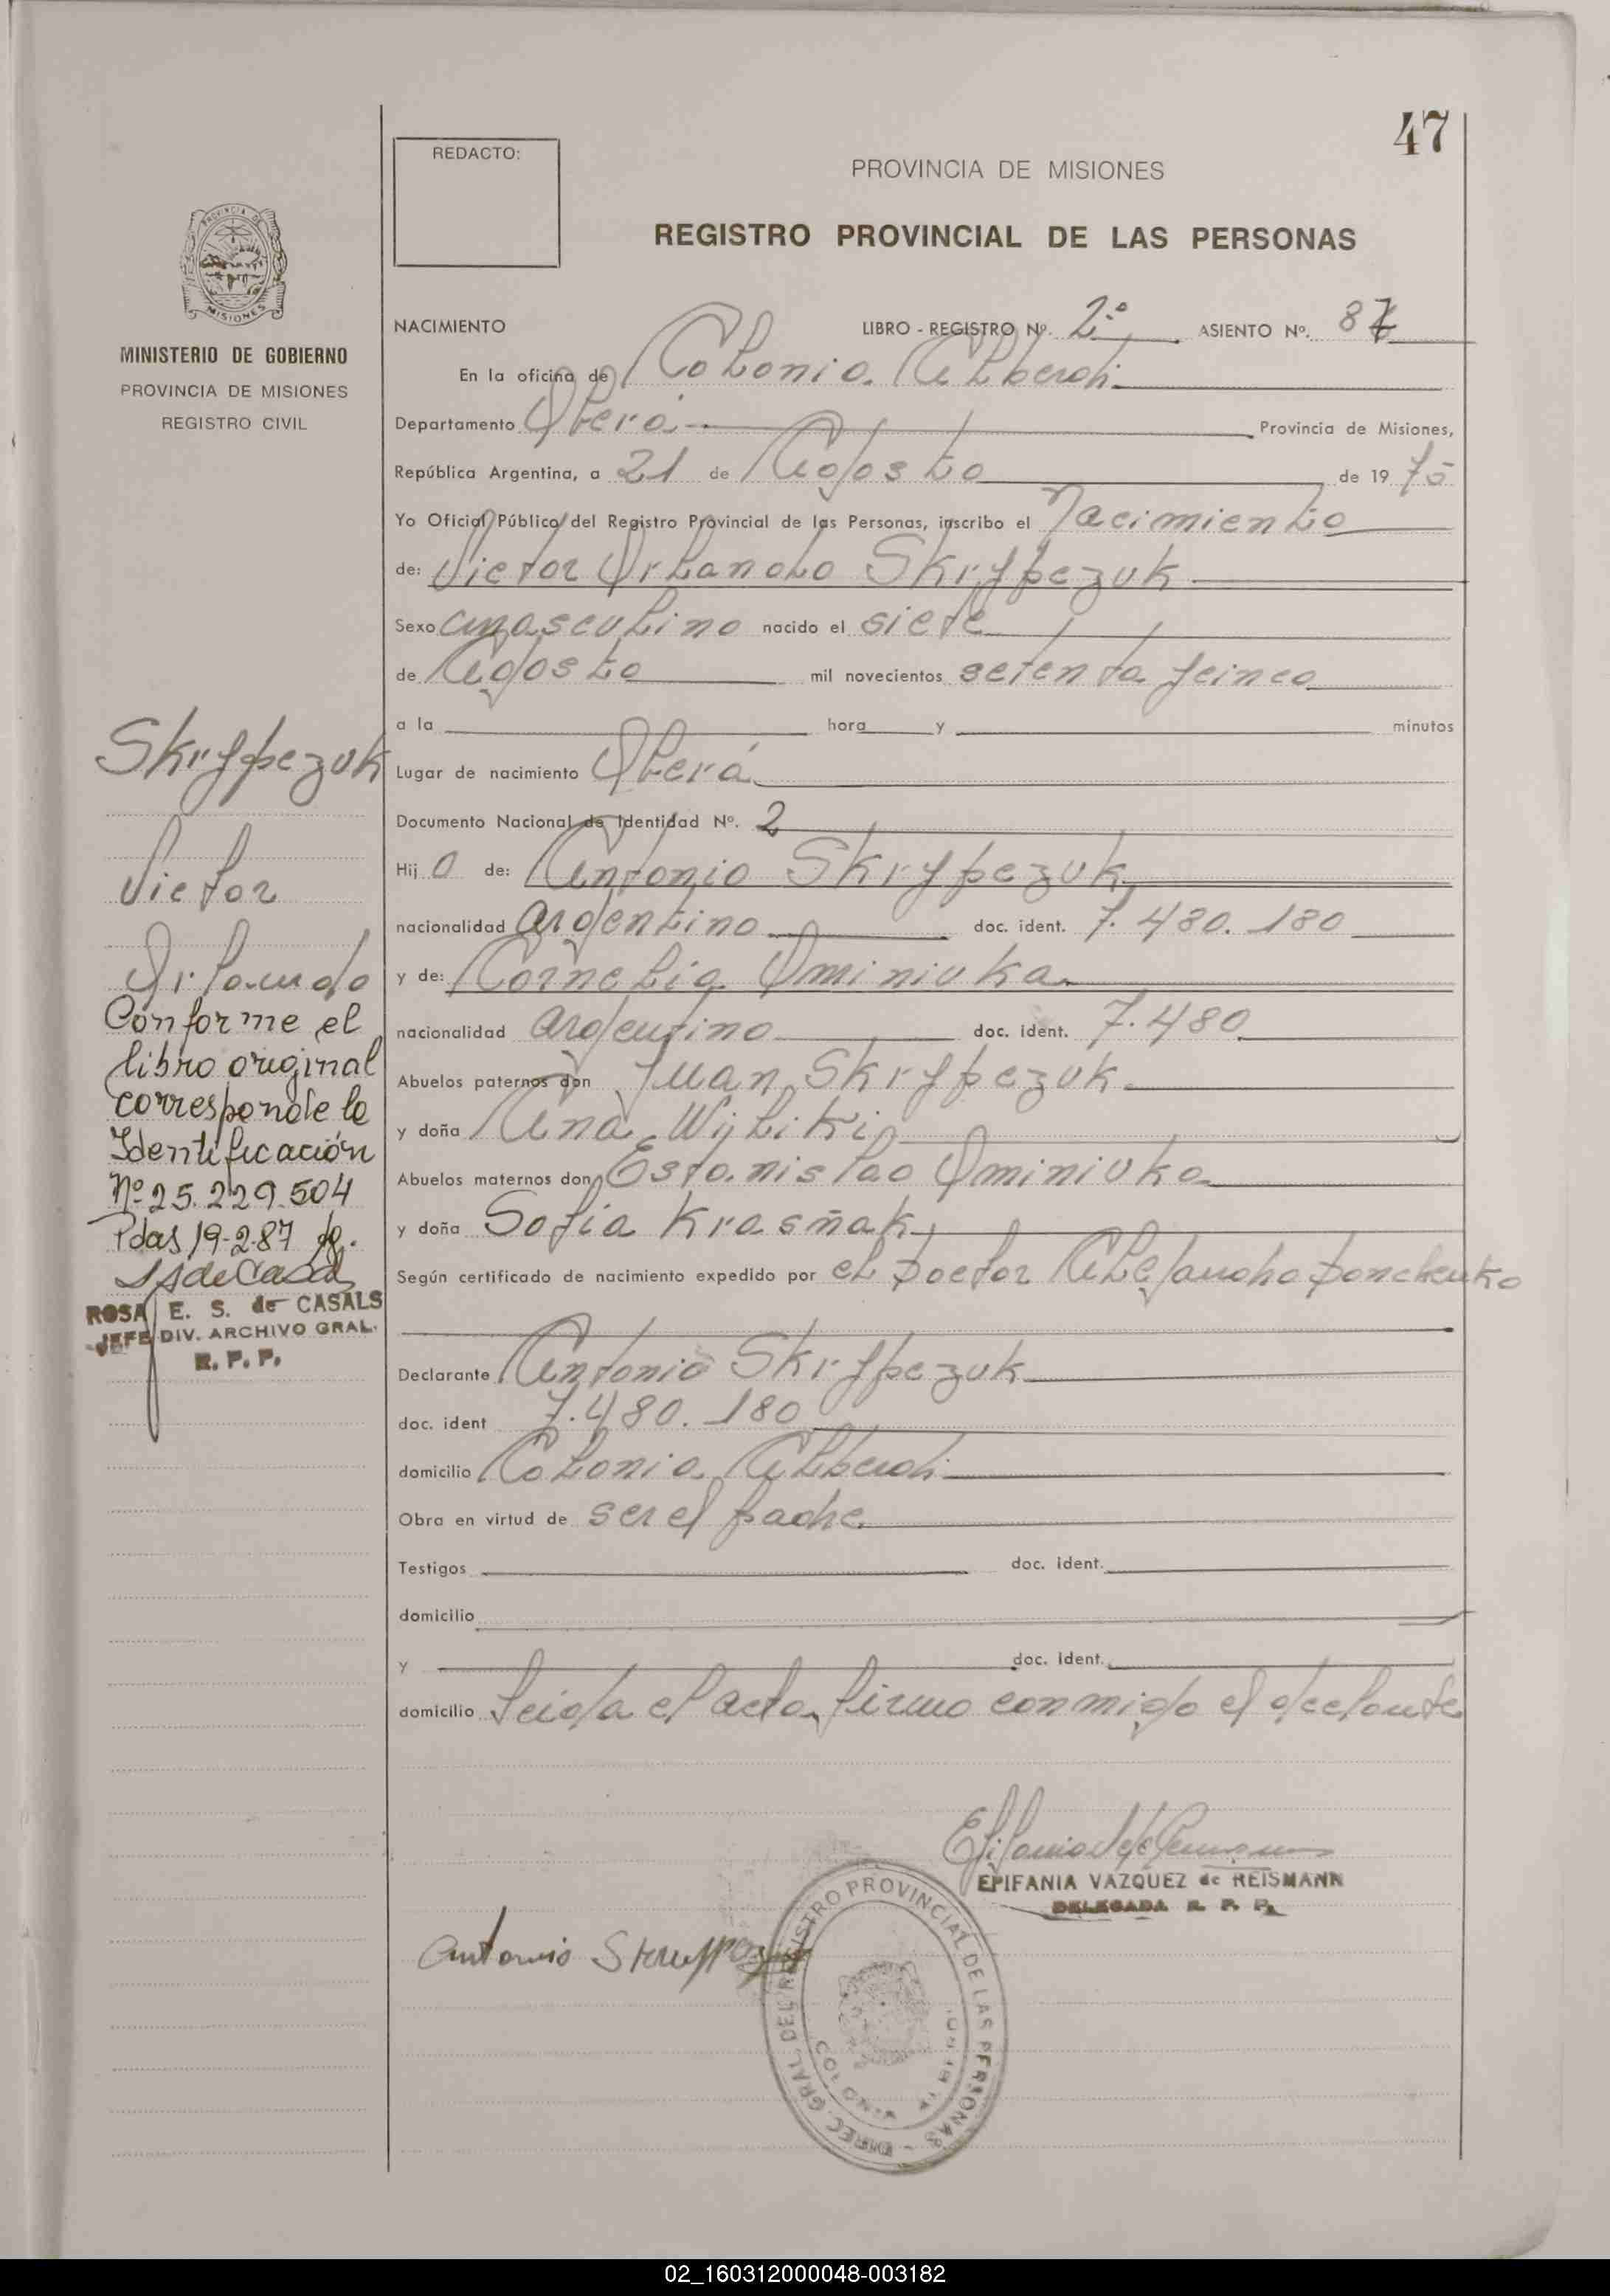 47
REDACTO:
PROVINCIA DE MISIONES
REGISTRO PROVINCIAL DE LAS PERSONAS
PROVINCIA DE
MISIONES
MINISTERIO DE GOBIERNO
PROVINCIA DE MISIONES
REGISTRO CIVIL
NACIMIENTO LIBRO - REGISTRO Nº. 2º ASIENTO Nº. 87
En la oficina de Colonia Alberdi
Departamento Oberá Provincia de Misiones,
República Argentina, a 21 de Agosto de 1975
Yo Oficial Público del Registro Provincial de las Personas, inscribo el Nacimiento
de: Victor Orlando Skrypczuk
Sexo masculino nacido el siete
de Agosto mil novecientos setenta y cinco
a la hora y minutos
Lugar de nacimiento Oberá
Documento Nacional de Identidad Nº. 2
Hijo de: Antonio Skrypczuk
nacionalidad argentino doc. ident. 7.480.180
y de: Cornelia Ominiuka
nacionalidad argentino doc. ident. 7.480
Abuelos paternos don Juan Skrypczuk
y doña Ana Wijliki
Abuelos maternos don Estanislao Ominiuka
y doña Sofia Krasñak
Según certificado de nacimiento expedido por el Doctor Alejandro Donchenko
Declarante Antonio Skrypczuk
doc. ident 7.480.180
domicilio Colonia Alberdi
Obra en virtud de ser el padre
Testigos doc. ident.
domicilio
y doc. ident.
domicilio Leida el acta, firmo conmigo el declante
Skrypczuk
Victor
Orlando
Conforme el
libro original
corresponde la
Identificación
Nº 25.229.504
Pdas 19-2-87
ROSA E. S. de CASALS
JEFE DIV. ARCHIVO GRAL.
R. P. P.
EPIFANIA VAZQUEZ de REISMANN
DELEGADA R. P. P.
Antonio Skrypczuk
DIREC. GRAL. DEL REGISTRO PROVINCIAL DE LAS PERSONAS
COLONIA
02_160312000048-003182